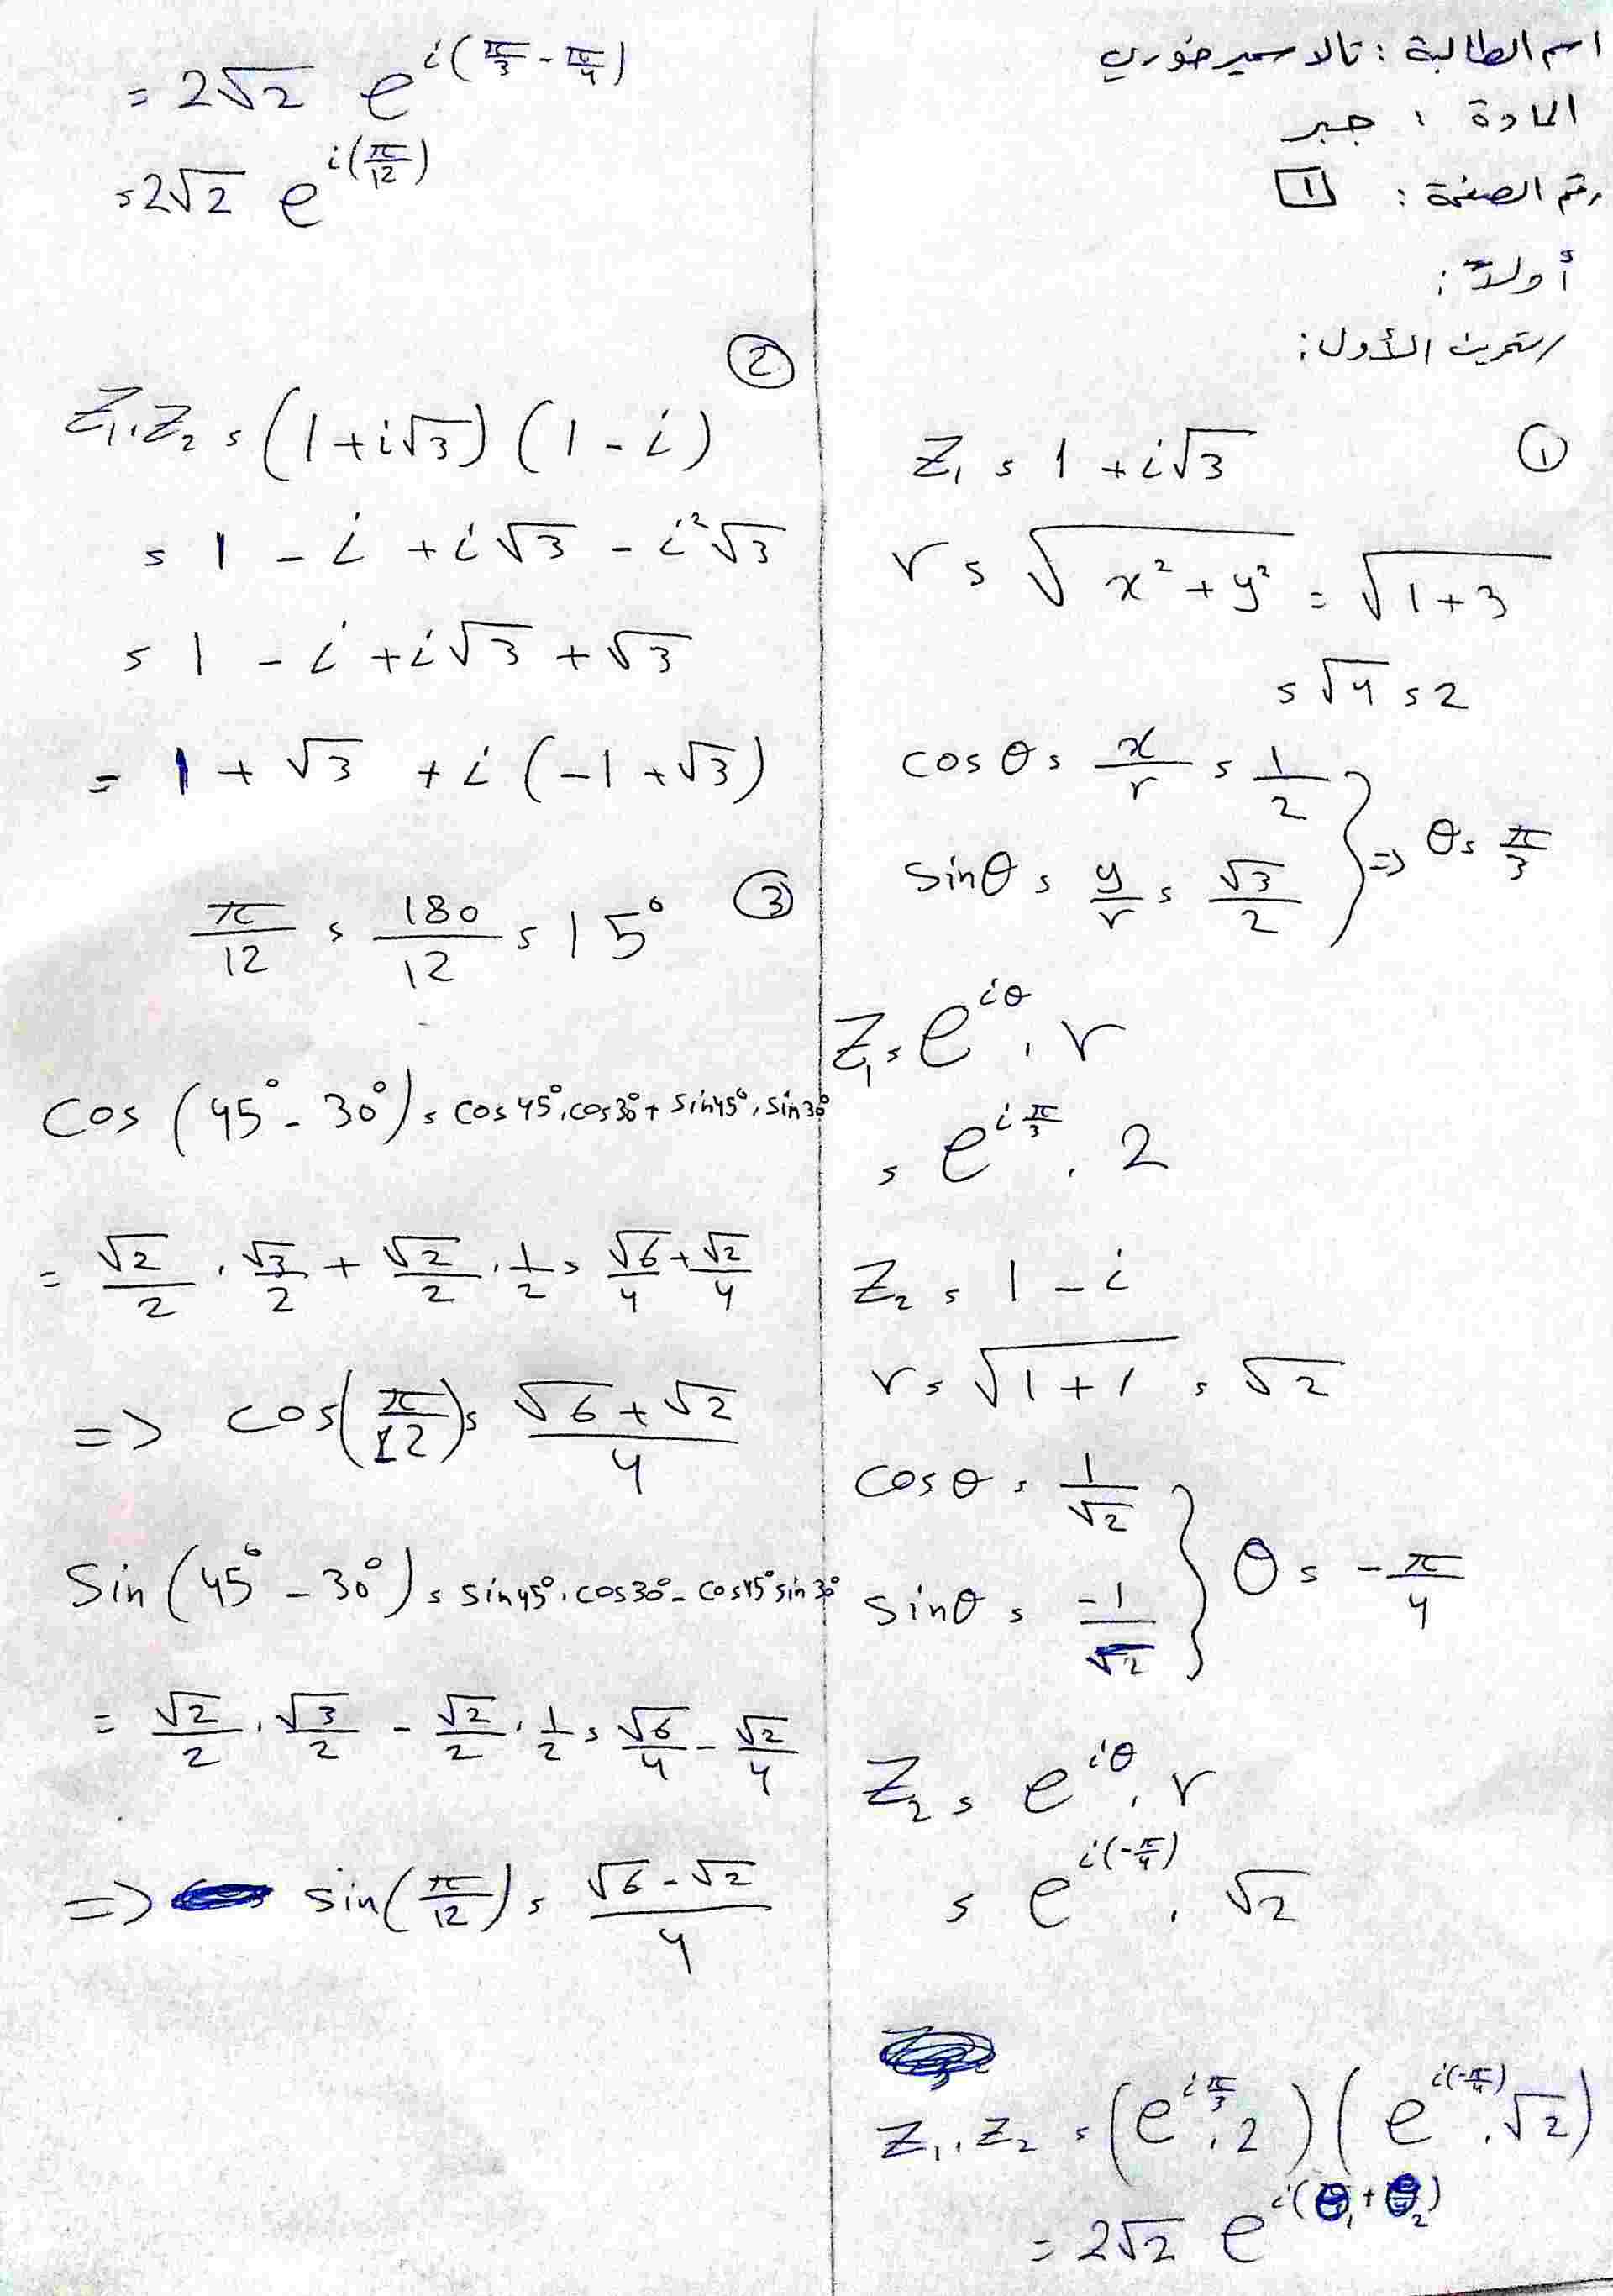 اسم الطالبة : تالا سمير خوري
المادة : جبر
رقم الصفحة : 1
أولاً :
التمرين الأول :
①
Z₁ = 1 + i√3
r = √(x² + y²) = √(1+3)
= √4 = 2
cos θ = x/r = 1/2
sin θ = y/r = √3/2 } => θ = π/3
Z₁ = e^(iθ) . r
= e^(i π/3) . 2
Z₂ = 1 - i
r = √(1+1) = √2
cos θ = 1/√2
sin θ = -1/√2 } θ = -π/4
Z₂ = e^(iθ) . r
= e^(i(-π/4)) . √2
Z₁ . Z₂ = (e^(i π/3) . 2) (e^(i(-π/4)) . √2)
= 2√2 e^(i(θ₁ + θ₂))
= 2√2 e^(i(π/3 - π/4))
= 2√2 e^(i(π/12))
②
Z₁ . Z₂ = (1 + i√3) (1 - i)
= 1 - i + i√3 - i²√3
= 1 - i + i√3 + √3
= 1 + √3 + i(-1 + √3)
③
π/12 = 180/12 = 15°
cos (45° - 30°) = cos 45° . cos 30° + sin 45° . sin 30°
= √2/2 . √3/2 + √2/2 . 1/2 = √6/4 + √2/4
=> cos(π/12) = (√6 + √2)/4
sin (45° - 30°) = sin 45° . cos 30° - cos 45° sin 30°
= √2/2 . √3/2 - √2/2 . 1/2 = √6/4 - √2/4
=> sin(π/12) = (√6 - √2)/4